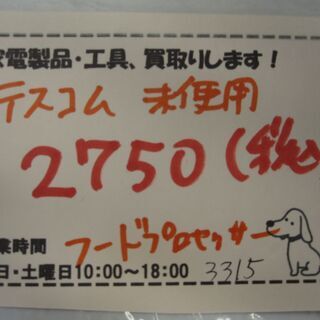 家電製品・工具、買取りします！
テスコム 未使用
2750(税込
業時間 フードプロセッサー
日・土曜日10:00～18:00 3315